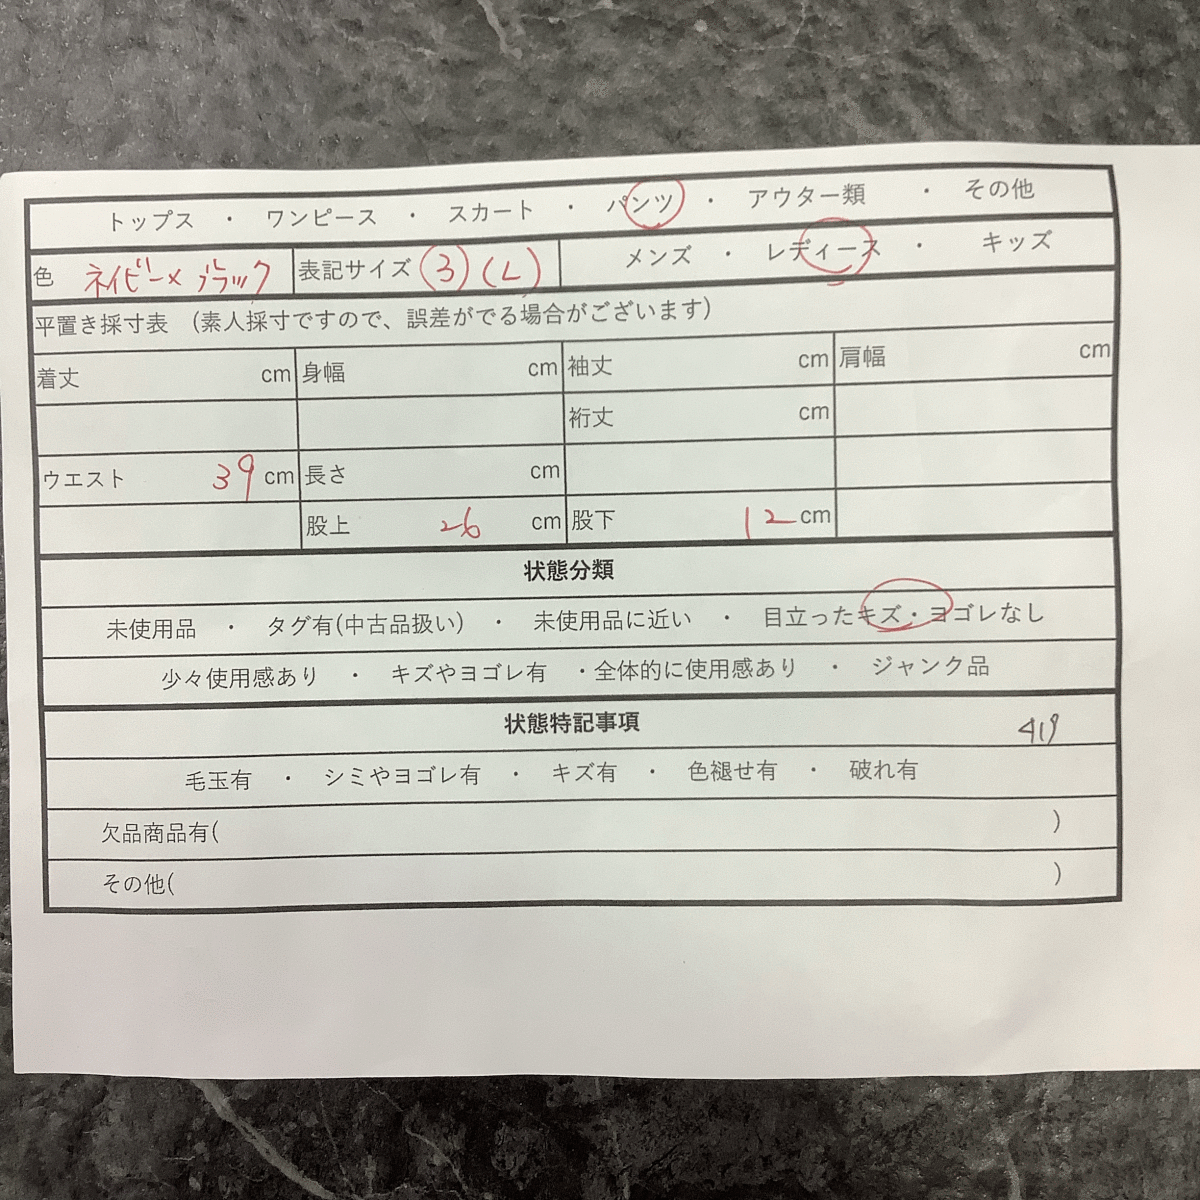 トップス ・ ワンピース ・ スカート ・ パンツ ・ アウター類 ・ その他
色 ネイビー×ブラック 表記サイズ ③(L) メンズ ・ レディース ・ キッズ
平置き採寸表 (素人採寸ですので、誤差がでる場合がございます)
着丈 cm 身幅 cm 袖丈 cm 肩幅 cm
裄丈 cm
ウエスト 39 cm 長さ cm
股上 26 cm 股下 12 cm
状態分類
未使用品 ・ タグ有(中古品扱い) ・ 未使用品に近い ・ 目立ったキズ・ヨゴレなし
少々使用感あり ・ キズやヨゴレ有 ・全体的に使用感あり ・ ジャンク品
状態特記事項
毛玉有 ・ シミやヨゴレ有 ・ キズ有 ・ 色褪せ有 ・ 破れ有
欠品商品有( )
その他( )